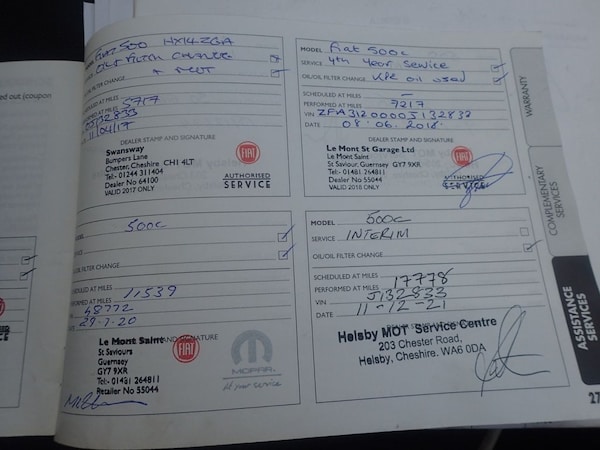 ed out (coupon
FIAT 500 HX14ZGA
OIL FILTER CHANGE
FILTER CHANGE + MOT
ED AT MILES
PERFORMED AT MILES 5717
J5132833
11/04/17
DEALER STAMP AND SIGNATURE
Swansway
Bumpers Lane
Chester, Cheshire CH1 4LT
Tel: 01244 311404
Dealer No 64100
VALID 2017 ONLY
FIAT
AUTHORISED
SERVICE
MODEL Fiat 500c
SERVICE 4th Year Service
OIL/OIL FILTER CHANGE
oil used
SCHEDULED AT MILES
PERFORMED AT MILES 9217
VIN ZFA3120000J132833
DATE 08.06.2018
DEALER STAMP AND SIGNATURE
Le Mont St Garage Ltd
Le Mont Saint
St Saviour, Guernsey GY7 9XR
Tel: 01481 264811
Dealer No 55044
VALID 2018 ONLY
FIAT
AUTHORISED
SERVICE
500c
OIL FILTER CHANGE
SCHEDULED AT MILES
PERFORMED AT MILES 11539
29-7-20
AND SIGNATURE
Le Mont Saint
St Saviours
Guernsey
GY7 9XR
Tel:- 01481 264811
Retailer No 55044
FIAT
MOPAR
At your service
MODEL 500c
SERVICE INTERIM
OIL/OIL FILTER CHANGE
SCHEDULED AT MILES
PERFORMED AT MILES 17778
VIN J132833
DATE 11-12-21
Helsby MOT Service Centre
203 Chester Road,
Helsby, Cheshire. WA6 0DA
WARRANTY
COMPLEMENTARY
SERVICES
ASSISTANCE
SERVICES
27